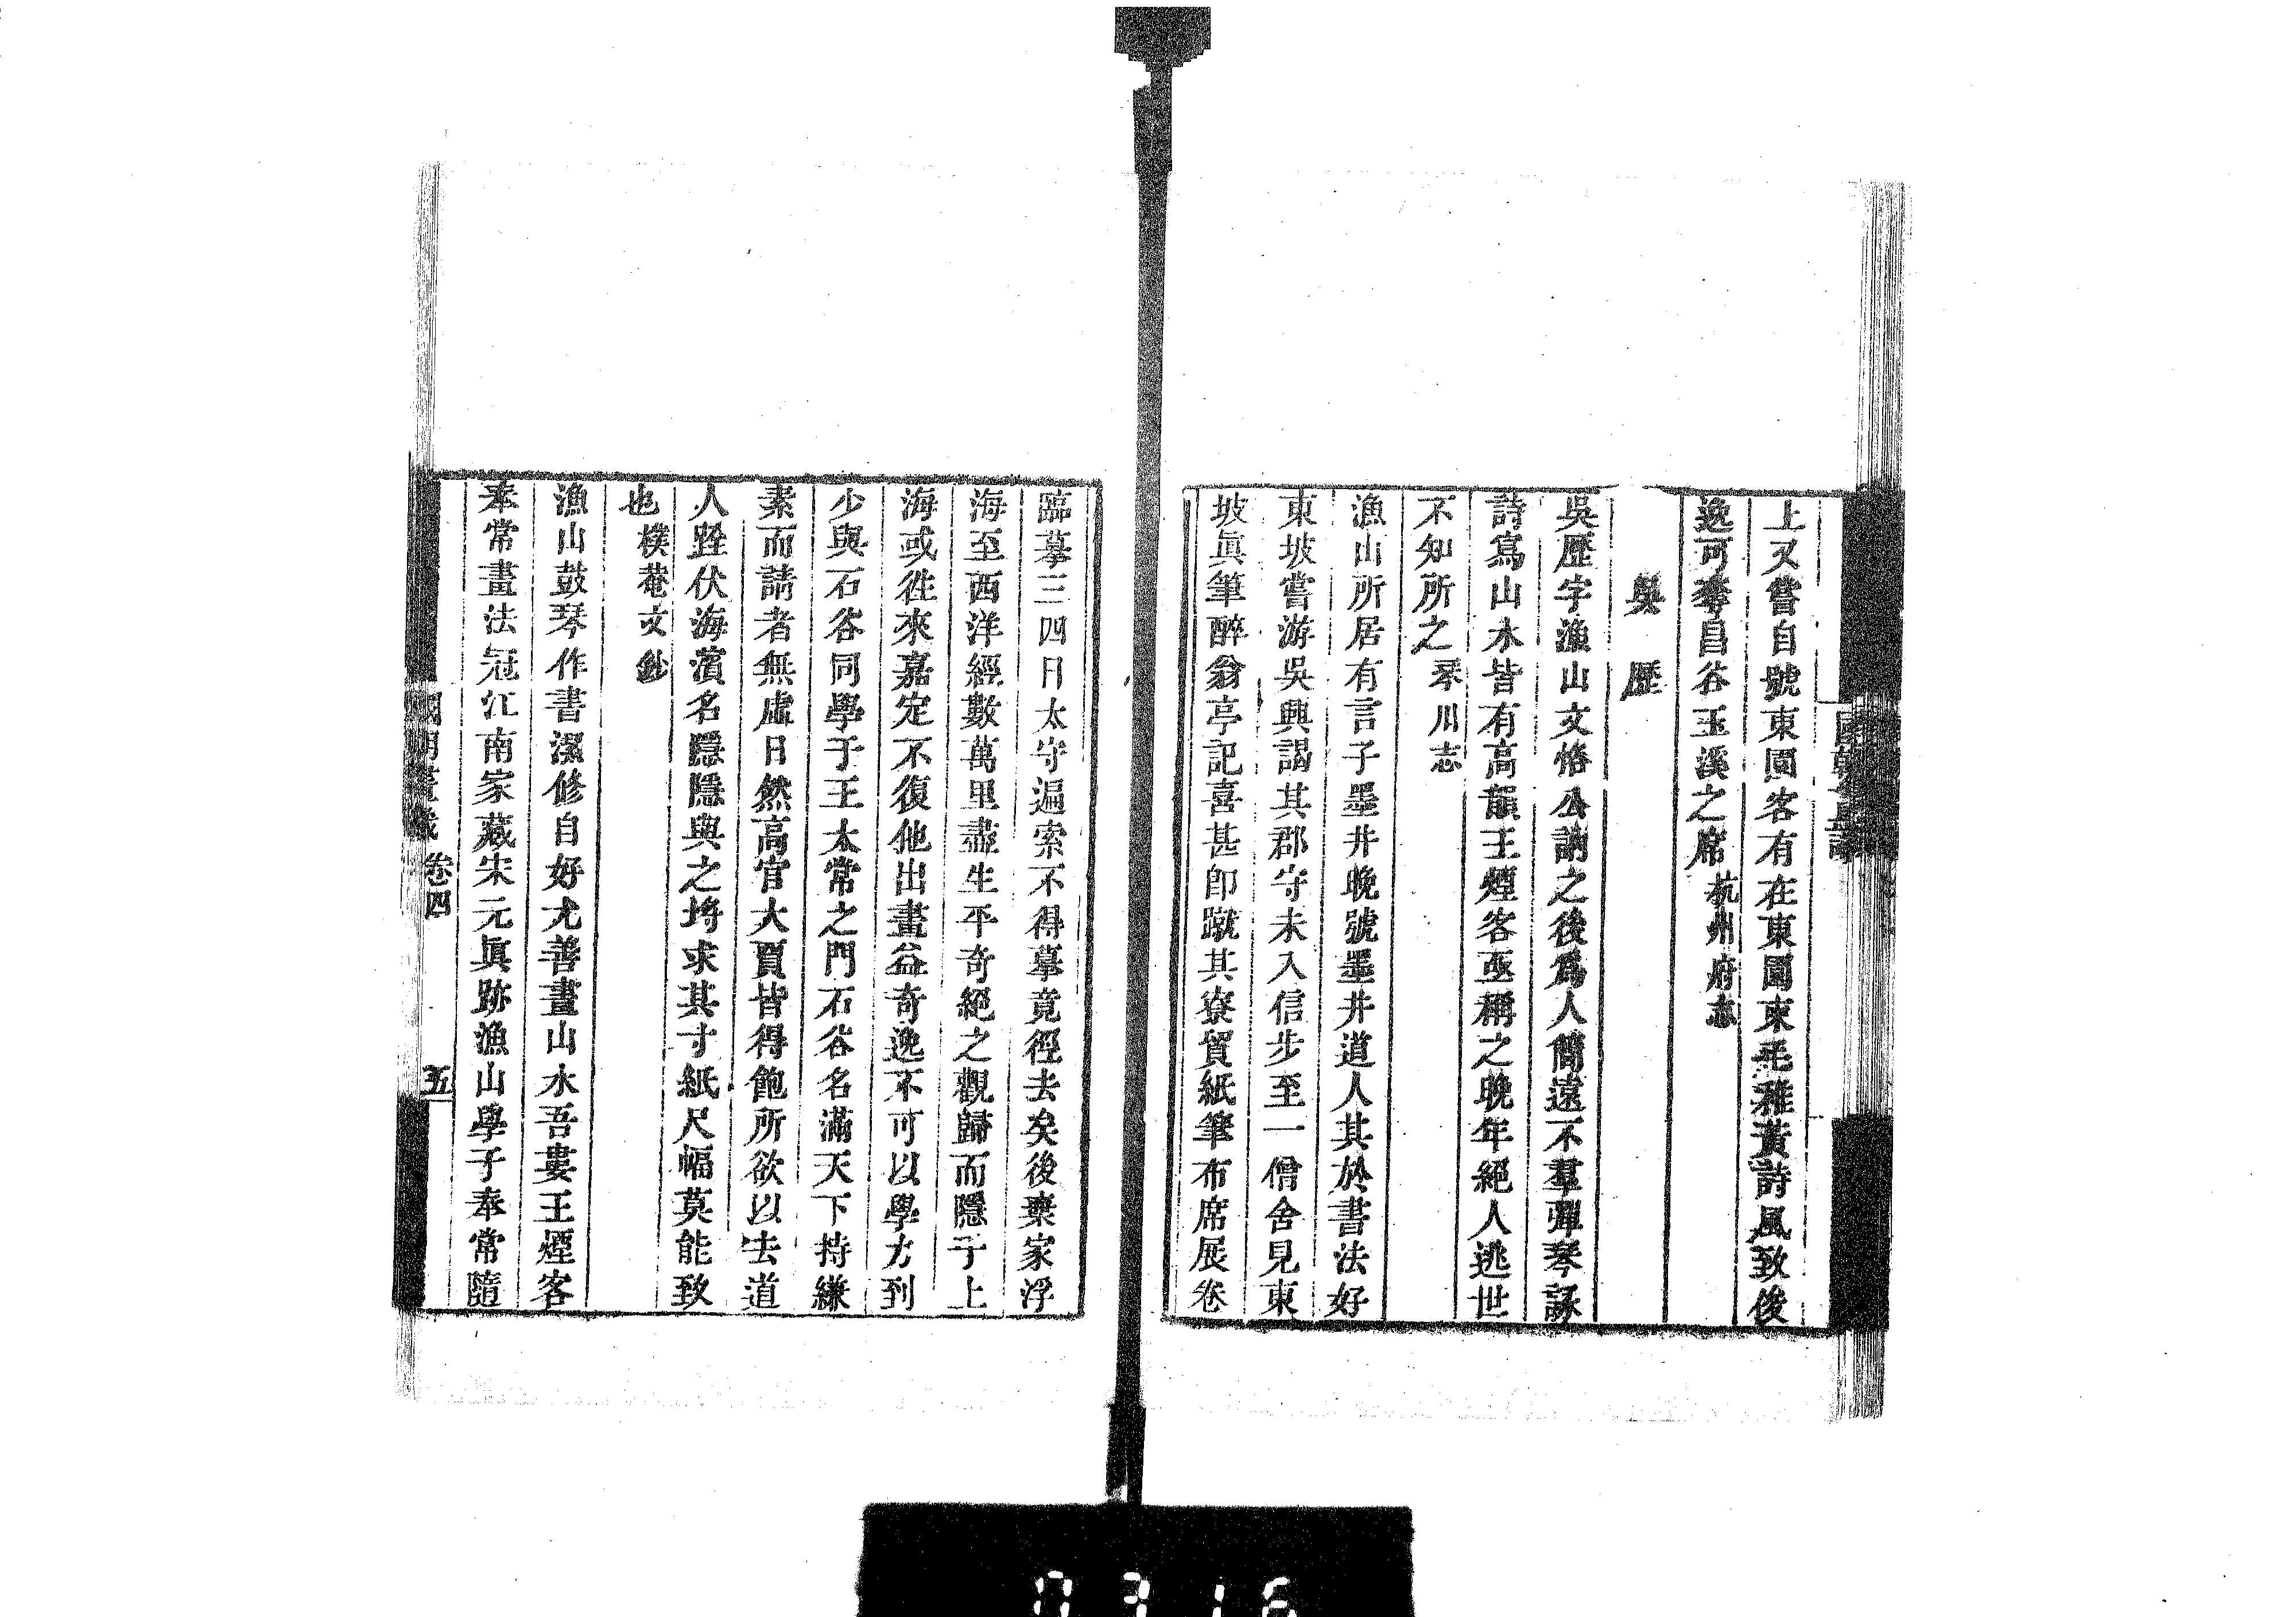 上又嘗自號東園客有在東園東毛稚黃詩風致後
逸可奪昌谷玉溪之席杭州府志
吳歷
吳歷字漁山文恪公訥之後爲人簡遠不羣彈琴詠
詩寫山水皆有高韻王煙客亟稱之晚年絕人逃世
不知所之琴川志
漁山所居有言子墨井晚號墨井道人其於書法好
東坡嘗游吳興謁其郡守未入信步至一僧舍見東
坡眞筆醉翁亭記喜甚卽蹴其寮貿紙筆布席展卷
臨摹三四日太守遍索不得摹竟徑去矣後棄家浮
海至西洋經數萬里盡生平奇絕之觀歸而隱于上
海或往來嘉定不復他出畫益奇逸不可以學力到
少與石谷同學于王太常之門石谷名滿天下持縑
素而請者無虛日然高官大賈皆得飽所欲以去道
人跧伏海濱名隱隱與之埒求其寸紙尺幅莫能致
也樸菴文鈔
漁山鼓琴作書潔修自好尤善畫山水吾婁王煙客
奉常畫法冠江南家藏宋元眞跡漁山學于奉常隨
卷四
五